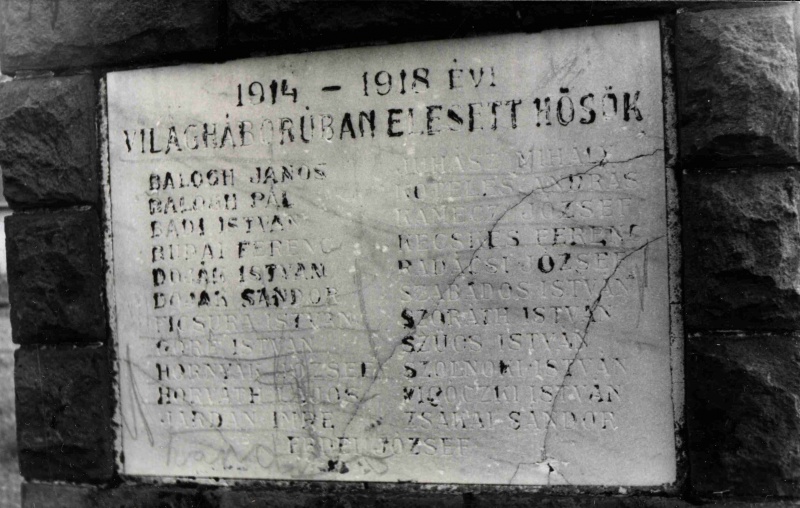 1914 - 1918 ÉVI
VILÁGHÁBORÚBAN ELESETT HŐSÖK
BALOGH JÁNOS
BALOGH PÁL
BÁDI ISTVÁN
BUDAI FERENC
DOJÁK ISTVÁN
DOJÁK SÁNDOR
ISTVÁN
ISTVÁN
HORNYÁK JÓZSEF
HORVÁTH LAJOS
JÁRDÁN IMRE
JUHÁSZ MIHÁLY
KÖTELES ANDRÁS
KANECZ JÓZSEF
KECSKÉS FERENC
RADÁCSI JÓZSEF
SZABADOS ISTVÁN
SZORÁTH ISTVÁN
SZŰCS ISTVÁN
SZOLNOKI ISTVÁN
ISTVÁN
ZSAKAI SÁNDOR
ERDEI JÓZSEF